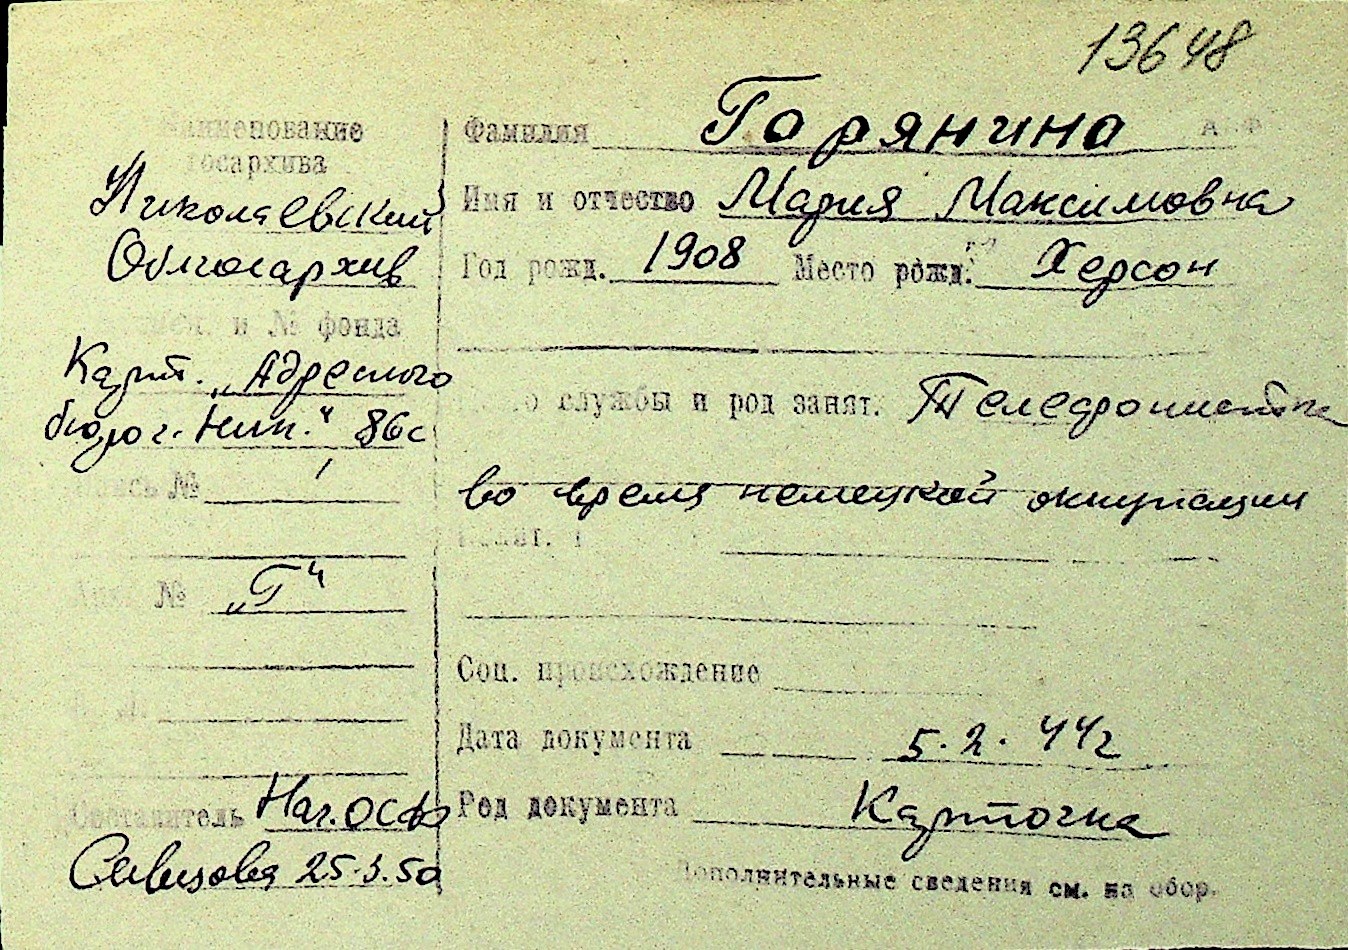 13648
Наименование
госархива
Николаевский
Облгосархив
и № фонда
Карт. „Адресного
бюро г. Ник." 86с
Опись №
„Г"
№
Составитель Нач. ОСФ
25.3.50
Фамилия Горянина
Имя и отчество Мария Максимовна
Год рожд. 1908 Место рожд. Херсон
службы и род занят. Телефонистка
во время немецкой оккупации
Соц. происхождение
Дата документа 5.2.44г
Род документа Карточка
Дополнительные сведения см. на обор.